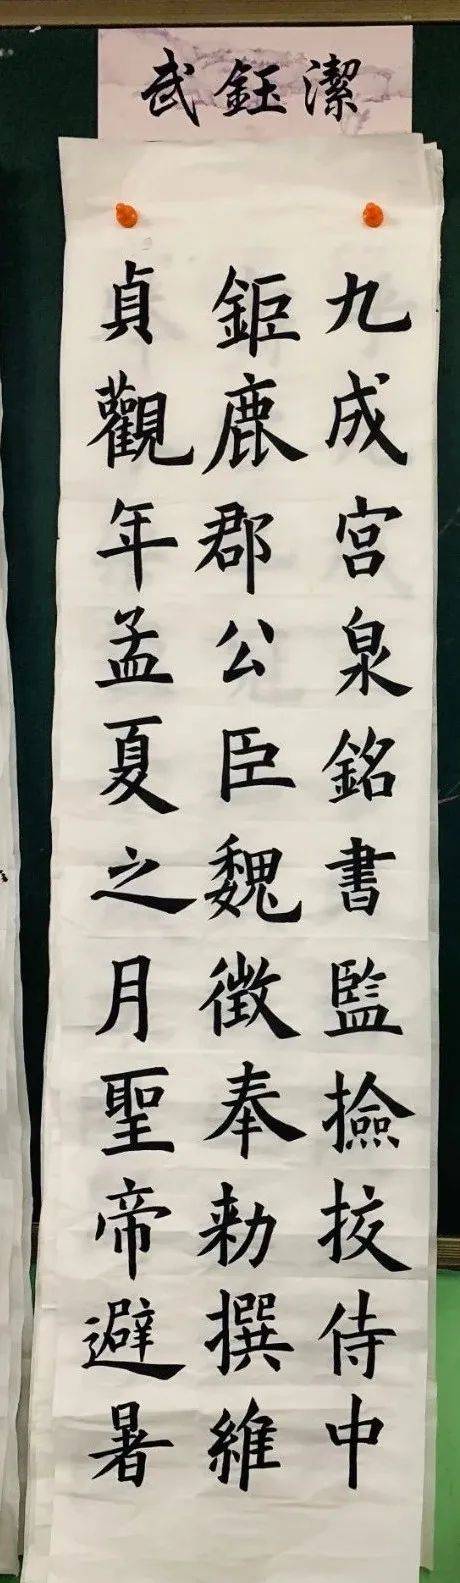 武鈺潔
九成宮泉銘書監撿挍侍中
鉅鹿郡公臣魏徵奉勅撰維
貞觀年孟夏之月聖帝避暑